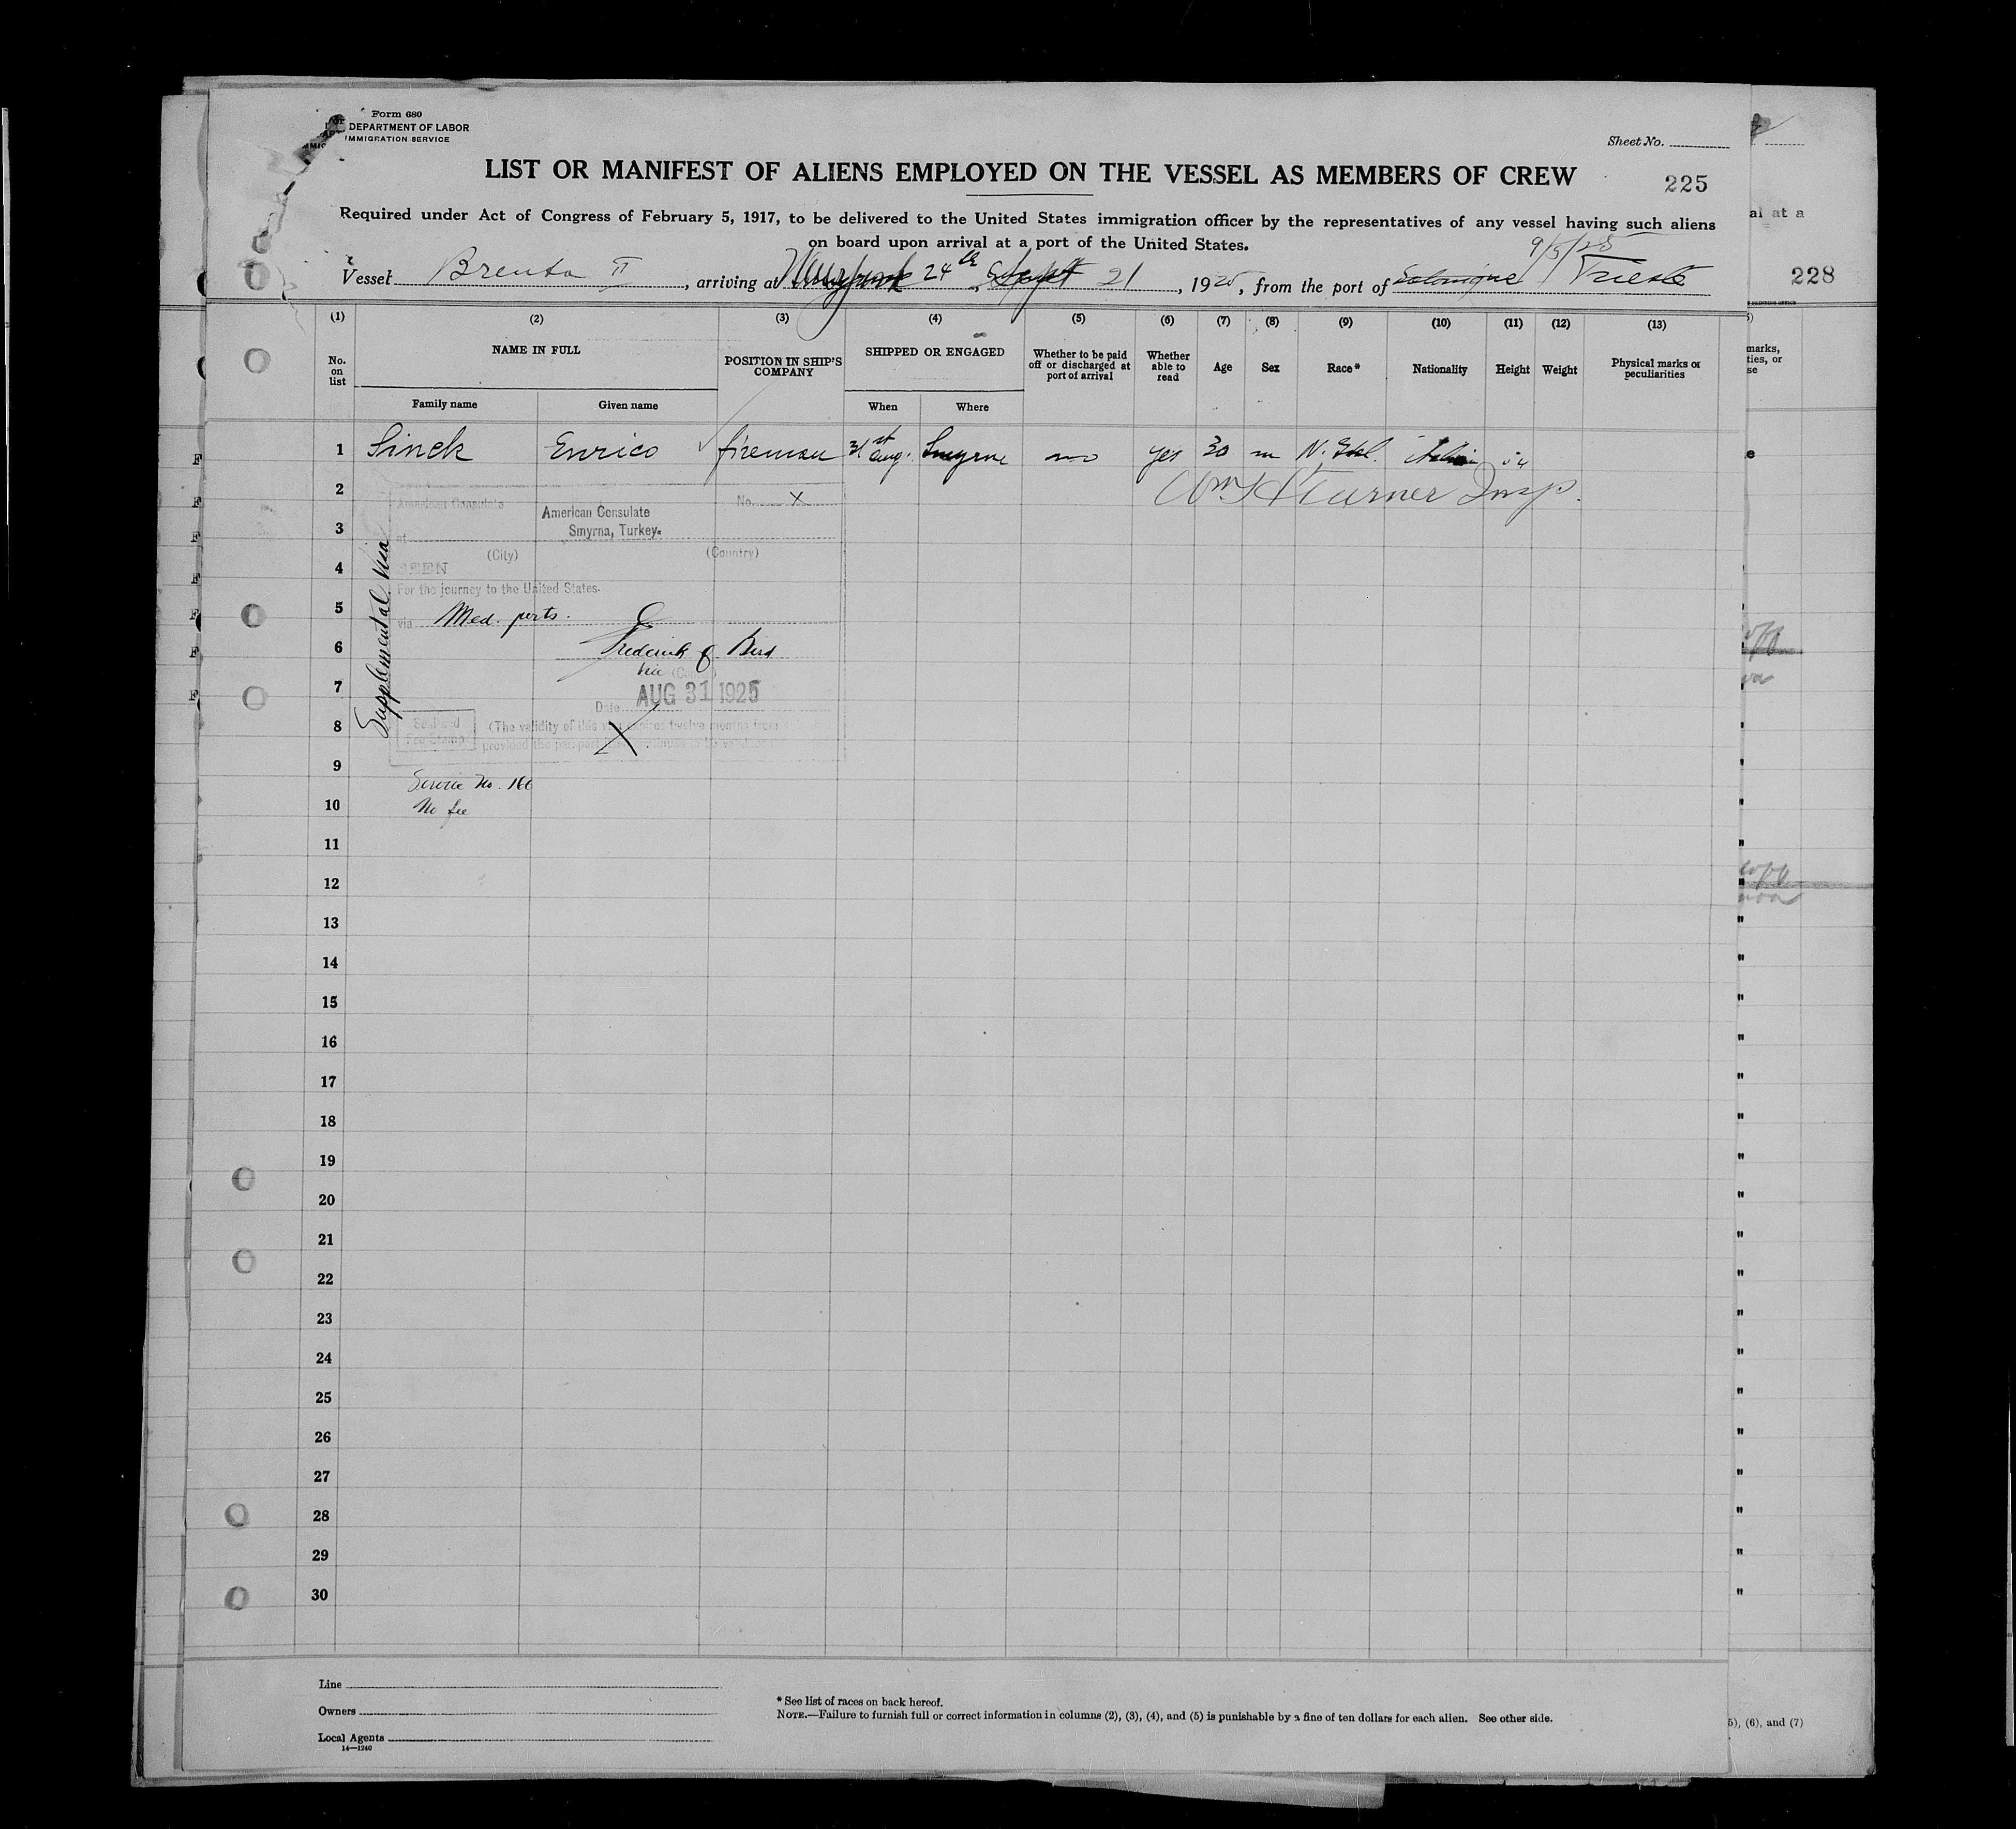 Form 680
DEPARTMENT OF LABOR
IMMIGRATION SERVICE
Sheet No.
LIST OR MANIFEST OF ALIENS EMPLOYED ON THE VESSEL AS MEMBERS OF CREW
225
Required under Act of Congress of February 5, 1917, to be delivered to the United States immigration officer by the representatives of any vessel having such aliens
on board upon arrival at a port of the United States.
al at a
9/5/25
Vessel Brenta II, arriving at New York 24th Sept 21, 1925, from the port of Salonique Trieste
228
(1) (2) (3) (4) (5) (6) (7) (8) (9) (10) (11) (12) (13)
No. on list
NAME IN FULL
Family name
Given name
POSITION IN SHIP'S COMPANY
SHIPPED OR ENGAGED
When
Where
Whether to be paid off or discharged at port of arrival
Whether able to read
Age
Sex
Race*
Nationality
Height
Weight
Physical marks or peculiarities
marks,
ties, or
se
1 Sinek Enrico fireman 31st Aug. Smyrne no yes 30 m N. Ital.
2
Wm H Turner Insp.
American Consulate
No. X
American Consulate
Smyrna, Turkey.
3
at
(City) (Country)
4 SEEN
For the journey to the United States.
5 via Med. ports.
6 Frederick O. Bird
Vice (Consul)
7 AUG 31 1925
Date
8 (The validity of this visa expires twelve months from
provided the passport continues to be valid
X
Supplemental Visa
9
Service No. 166
10 No fee
11
12
13
14
15
16
17
18
19
20
21
22
23
24
25
26
27
28
29
30
Line
Owners
Local Agents
14—1240
* See list of races on back hereof.
NOTE.—Failure to furnish full or correct information in columns (2), (3), (4), and (5) is punishable by a fine of ten dollars for each alien. See other side.
5), (6), and (7)